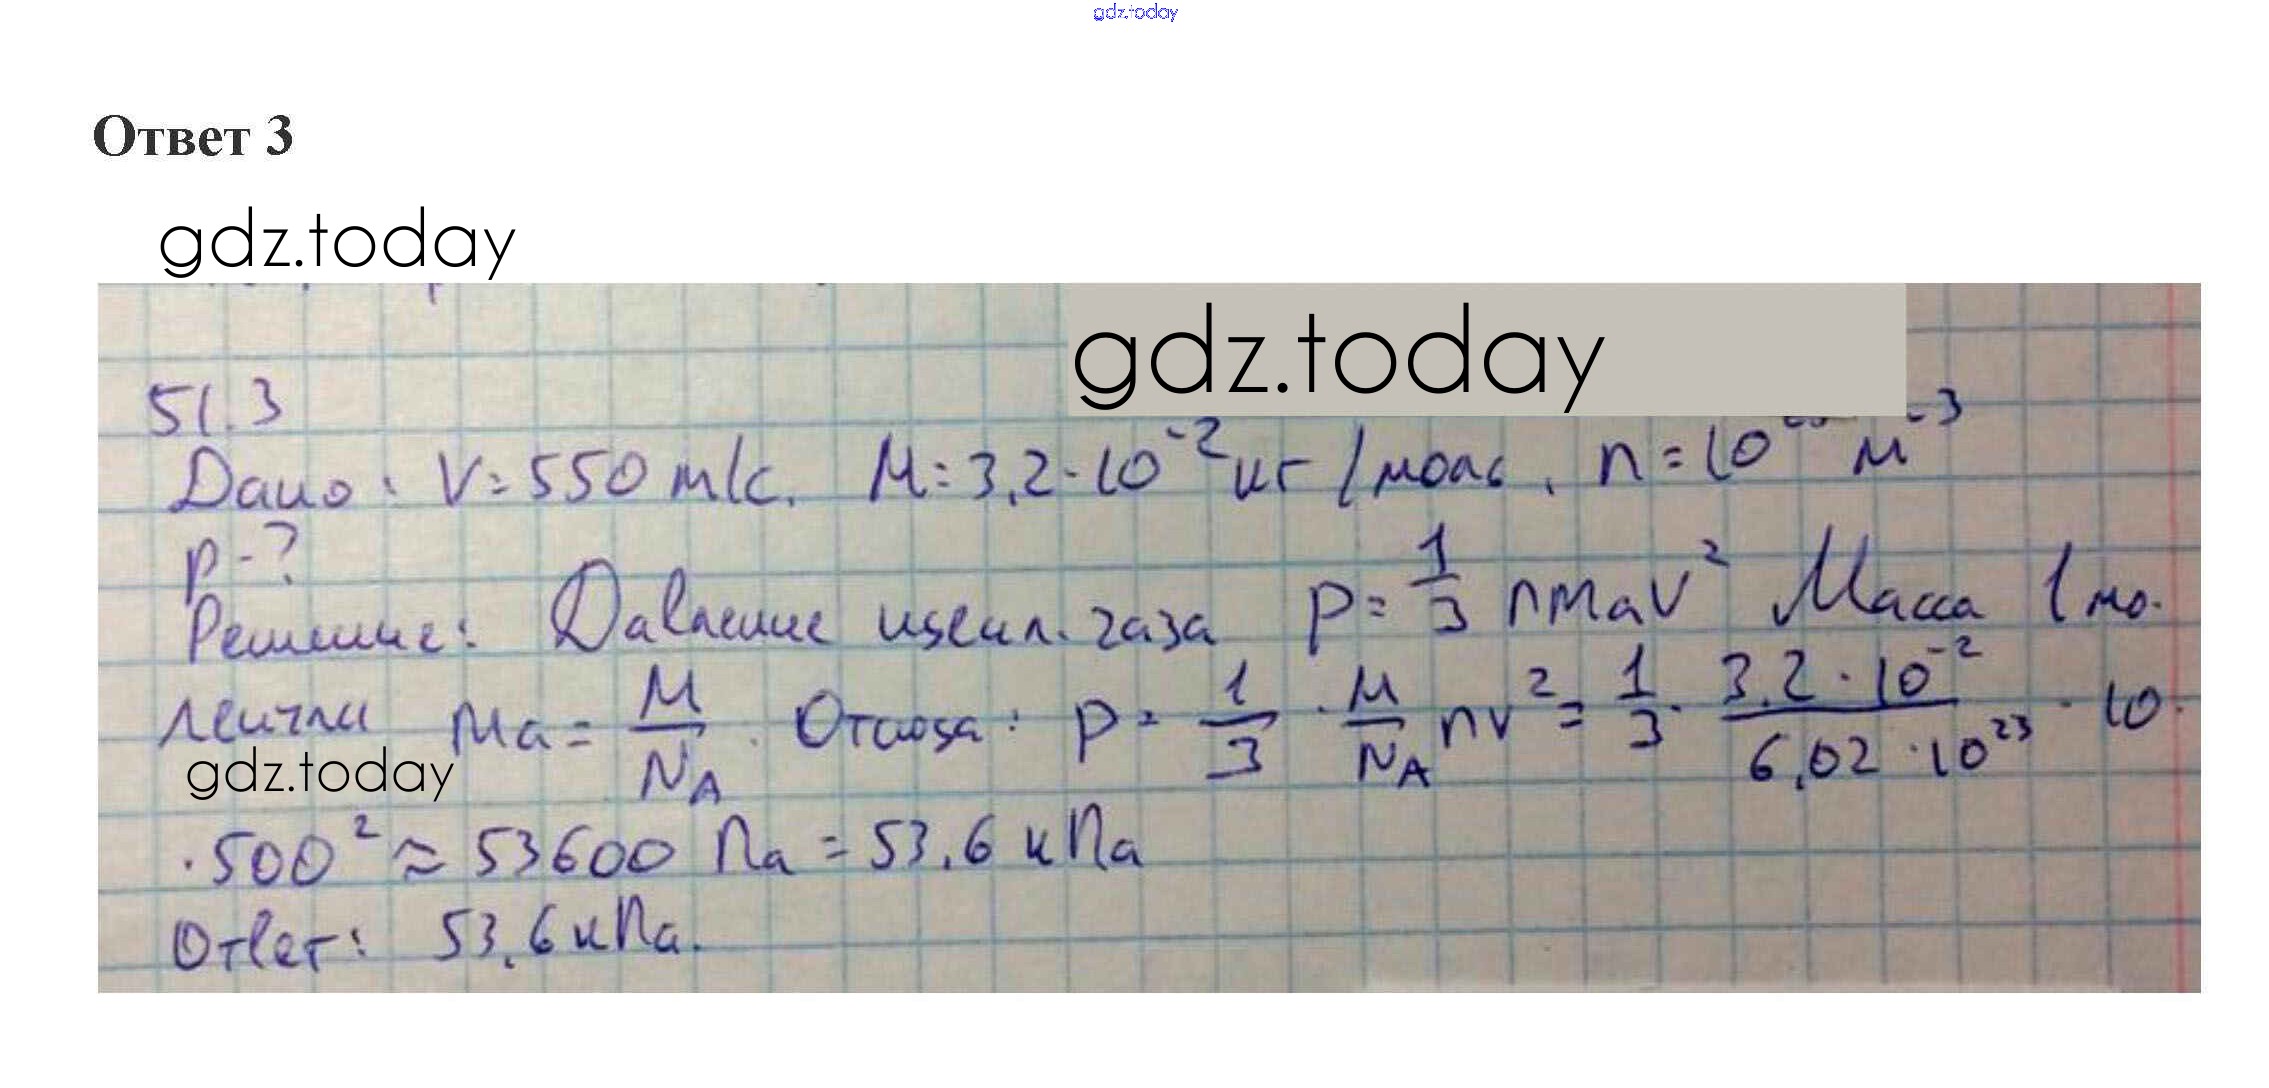 gdz.today
Ответ 3
gdz.today
gdz.today
51.3
Дано: V=550 м/с. M=3,2·10⁻² кг/моль. n=10 м⁻³
p-?
Решение: Давление идеал. газа p=1/3 nmav² Масса 1 мо-
лекулы ma=M/NA. Отсюда: p=1/3·M/NA nv²=1/3·3,2·10⁻²/6,02·10²³·10·
gdz.today
·500²≈53600 Па=53,6 кПа
Ответ: 53,6 кПа.